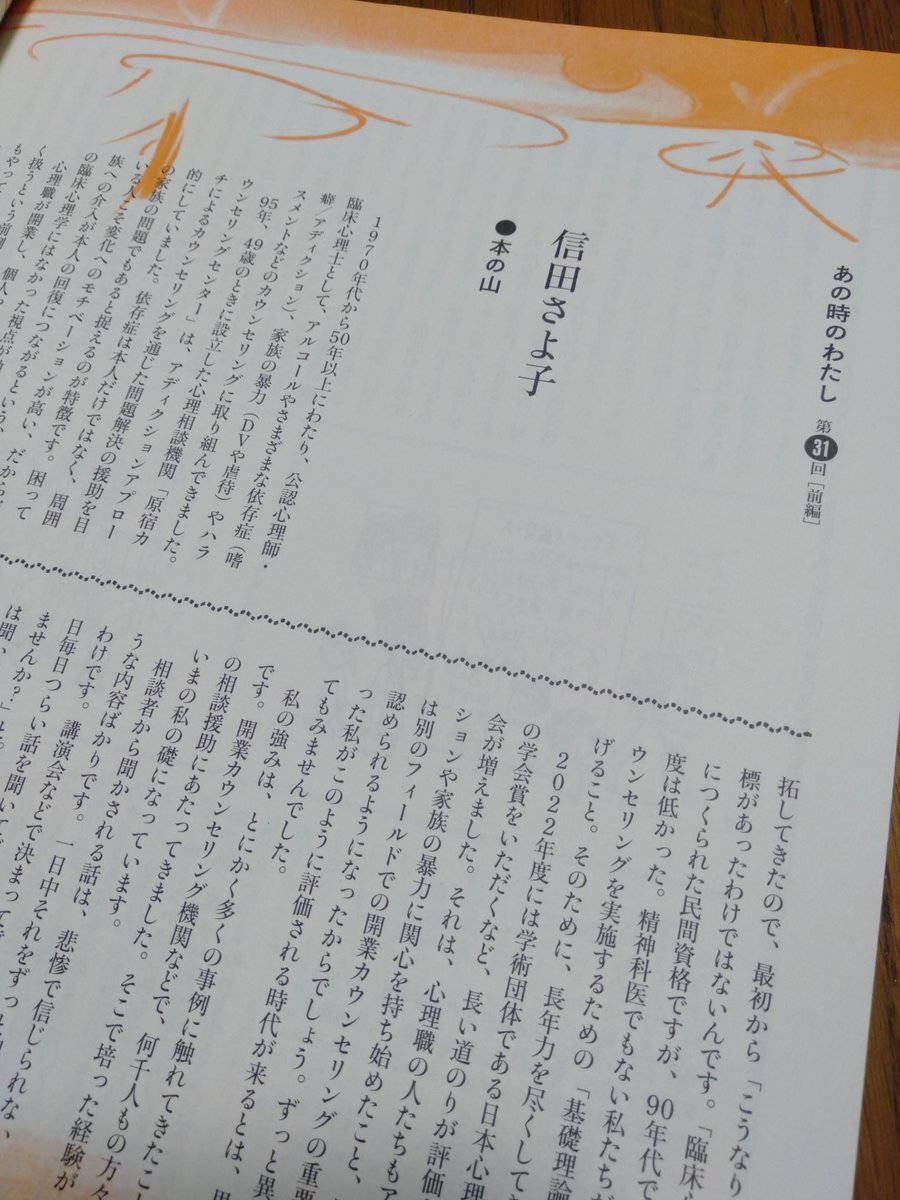 あの時のわたし 第31回［前編］
信田さよ子
●本の山
1970年代から50年以上にわたり、公認心理師・
臨床心理士として、アルコールやさまざまな依存症（嗜
癖／アディクション）、家族の暴力（DVや虐待）やハラ
スメントなどのカウンセリングに取り組んできました。
95年、49歳のときに設立した心理相談機関「原宿カ
ウンセリングセンター」は、アディクションアプロー
チによるカウンセリングを通じた問題解決の援助を目
的にしていました。依存症は本人だけではなく、周囲
の家族の問題でもあると捉えるのが特徴です。困って
いる人こそ変化へのモチベーションが高い、だから
族への介入が本人の回復につながるという、
の臨床心理学にはなかった視点が
心理職が開業し、個人
く扱うという前例
もやって
拓してきたので、最初から「こうなり
標があったわけではないんです。「臨床
につくられた民間資格ですが、90年代で
度は低かった。精神科医でもない私たちが
ウンセリングを実施するための「基礎理論
げること。そのために、長年力を尽くして
2022年度には学術団体である日本心理
の学会賞をいただくなど、長い道のりが評価
会が増えました。それは、心理職の人たちもア
ションや家族の暴力に関心を持ち始めたこと、
は別のフィールドでの開業カウンセリングの重要
認められるようになったからでしょう。ずっと異
った私がこのように評価される時代が来るとは、
てもみませんでした。
私の強みは、とにかく多くの事例に触れてきたこ
です。開業カウンセリング機関などで、何千人もの方々
の相談援助にあたってきました。そこで培った経験が
いまの私の礎になっています。
相談者から聞かされる話は、悲惨で信じられない
うな内容ばかりです。一日中それをずっと
わけです。講演会などで決まって
日毎日つらい話を聞いて
ませんか？」と。
は聞